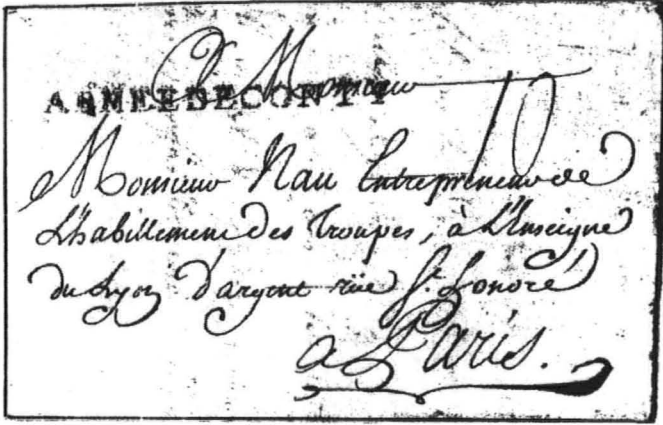 A Monsieur
ARMEE DE CONTY
10
Monsieur Nau Entrepreneur de
L'habillement des Troupes, à L'Enseigne
du Lyon d'argent rüe St. honoré
a Paris.